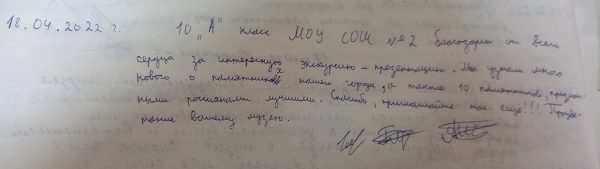 18.04.2022 г. 10 „А" класс МОУ СОШ №2 благодарит от всего
сердца за интересную экскурсию - презентацию. Мы узнали много
нового о памятниках нашего города, а также 10 памятников, признан-
ными россиянами лучшими. Спасибо, приглашайте нас ещё!!! Процве-
тание вашему музею.